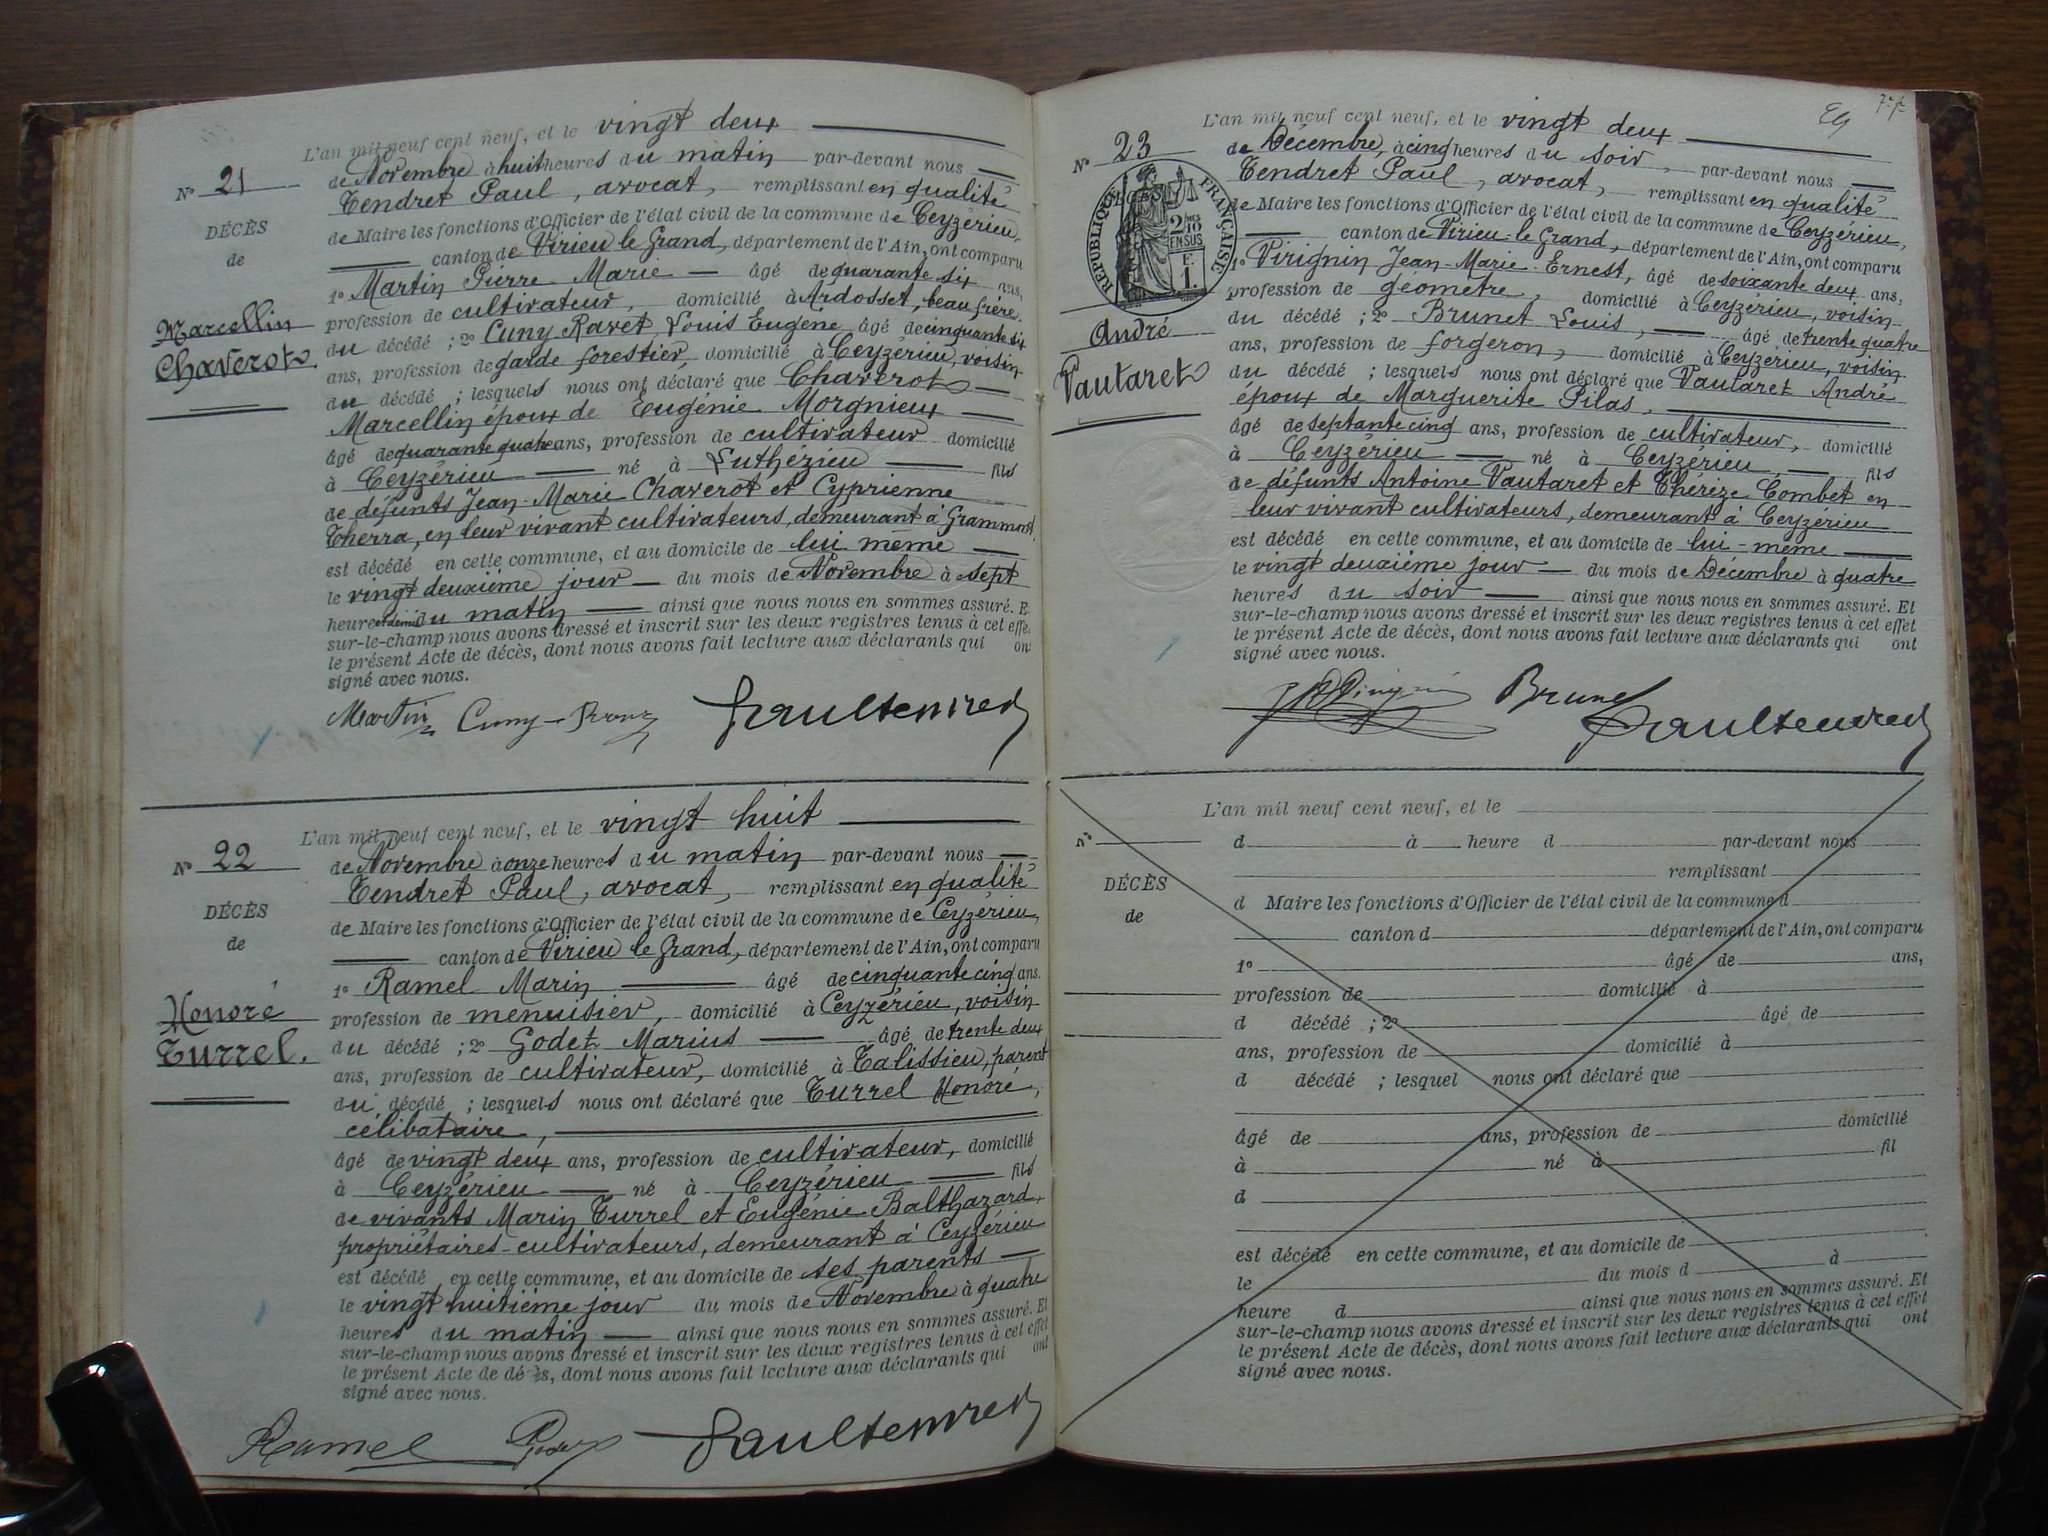 L'an mil neuf cent neuf, et le vingt deux
N° 21
de Novembre à huit heures du matin par-devant nous
Tendret Paul, avocat, remplissant en qualité
DÉCÈS
de Maire les fonctions d'Officier de l'état civil de la commune de Ceyzérieu,
de
canton de Virieu le Grand, département de l'Ain, ont comparu
1° Martin Pierre Marie âgé de quarante six ans,
profession de cultivateur, domicilié à Ardosset, beau frère
Marcellin
Chaverot
du décédé ; 2° Cuny Ravet Louis Eugène âgé de cinquante six
ans, profession de garde forestier domicilié à Ceyzérieu, voisin
du décédé ; lesquels nous ont déclaré que Chaverot
Marcellin époux de Eugénie Morgnieux
âgé de quarante quatre ans, profession de cultivateur domicilié
à Ceyzérieu né à Luthezieu fils
de défunts Jean-Marie Chaverot et Cyprienne
Therra, en leur vivant cultivateurs, demeurant à Grammont,
est décédé en cette commune, et au domicile de lui même
le vingt deuxième jour du mois de Novembre à sept
heures et demie du matin ainsi que nous nous en sommes assuré. E
sur-le-champ nous avons dressé et inscrit sur les deux registres tenus à cet effe
le présent Acte de décès, dont nous avons fait lecture aux déclarants qui on
signé avec nous.
Martin Cuny-Ravet Paul Tendret
L'an mil neuf cent neuf, et le vingt huit
N° 22
de Novembre à onze heures du matin par-devant nous
Tendret Paul, avocat, remplissant en qualité
DÉCÈS
de Maire les fonctions d'Officier de l'état civil de la commune de Ceyzérieu,
de
canton de Virieu le Grand, département de l'Ain, ont comparu
1° Ramel Marin âgé de cinquante cinq ans.
Honoré
profession de menuisier, domicilié à Ceyzérieu, voisin
Turrel.
du décédé ; 2° Godet Marius âgé de trente deux
ans, profession de cultivateur, domicilié à Talissieu, parent
du décédé ; lesquels nous ont déclaré que Turrel Honoré,
célibataire,
âgé de vingt deux ans, profession de cultivateur, domicilié
à Ceyzérieu né à Ceyzérieu fils
de vivants Marin Turrel et Eugénie Balthazard,
propriétaires-cultivateurs, demeurant à Ceyzérieu
est décédé en cette commune, et au domicile de ses parents
le vingt huitième jour du mois de Novembre à quatre
heures du matin ainsi que nous nous en sommes assuré. Et
sur-le-champ nous avons dressé et inscrit sur les deux registres tenus à cet effet
le présent Acte de décès, dont nous avons fait lecture aux déclarants qui ont
signé avec nous.
Ramel Godet Paul Tendret
L'an mil neuf cent neuf, et le vingt deux
N° 23
de Décembre, à cinq heures du soir, par-devant nous
Tendret Paul, avocat, remplissant en qualité
RÉPUBLIQUE FRANÇAISE
2/10 EN SUS
F. 1.
de Maire les fonctions d'Officier de l'état civil de la commune de Ceyzérieu,
canton de Virieu-le Grand, département de l'Ain, ont comparu
1° Virignin Jean-Marie-Ernest, âgé de soixante deux ans,
profession de géomètre, domicilié à Ceyzérieu, voisin
André
Vautaret
du décédé ; 2° Brunet Louis, âgé de trente quatre
ans, profession de forgeron, domicilié à Ceyzérieu, voisin
du décédé ; lesquels nous ont déclaré que Vautaret André
époux de Marguerite Pilas,
âgé de septante cinq ans, profession de cultivateur, domicilié
à Ceyzérieu né à Ceyzérieu, fils
de défunts Antoine Vautaret et Thérèze Combet en
leur vivant cultivateurs, demeurant à Ceyzérieu
est décédé en cette commune, et au domicile de lui-même
le vingt deuxième jour du mois de Décembre à quatre
heures du soir ainsi que nous nous en sommes assuré. Et
sur-le-champ nous avons dressé et inscrit sur les deux registres tenus à cet effet
le présent Acte de décès, dont nous avons fait lecture aux déclarants qui ont
signé avec nous.
Brunet Paul Tendret
L'an mil neuf cent neuf, et le
N°
d à heure d par-devant nous
remplissant
DÉCÈS
d Maire les fonctions d'Officier de l'état civil de la commune d
de
canton d département de l'Ain, ont comparu
1° âgé de ans,
profession de domicilié à
d décédé ; 2° âgé de
ans, profession de domicilié à
d décédé ; lesquel nous ont déclaré que
âgé de ans, profession de domicilié
à né à fil
d
est décédé en cette commune, et au domicile de
le du mois d à
heure d ainsi que nous nous en sommes assuré. Et
sur-le-champ nous avons dressé et inscrit sur les deux registres tenus à cet effet
le présent Acte de décès, dont nous avons fait lecture aux déclarants qui ont
signé avec nous.